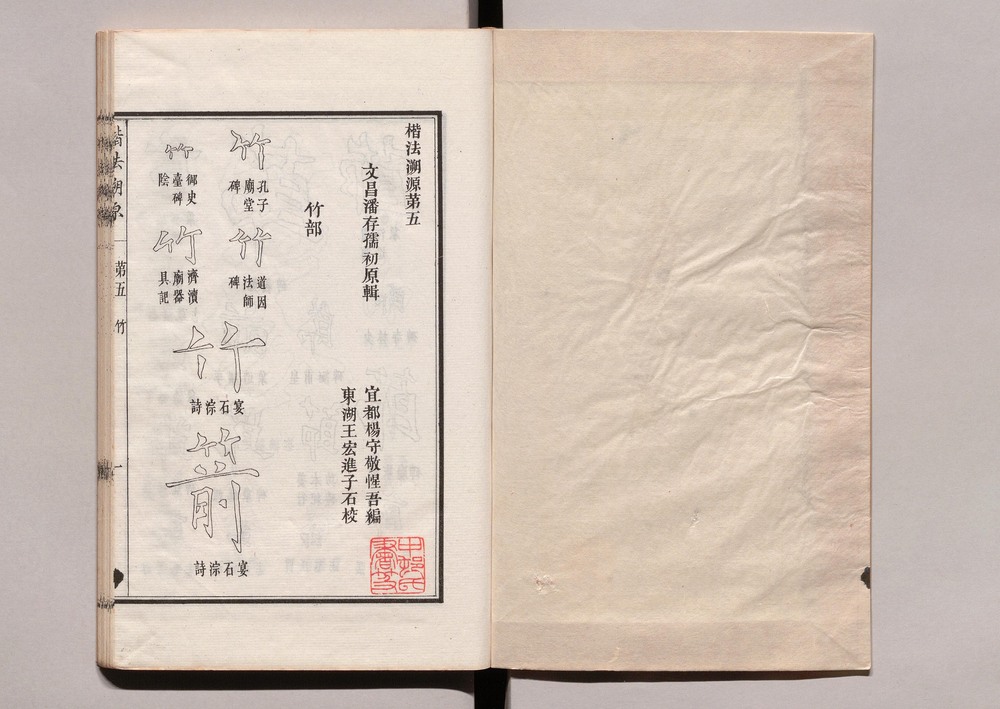 楷法溯源第五
文昌潘存孺初原輯
宜都楊守敬惺吾編
東湖王宏進子石校
竹部
竹
孔子廟堂碑
竹
道因法師碑
竹
宴石淙詩
箭
宴石淙詩
竹
御史臺碑陰
竹
濟瀆廟器具記
楷法溯源
第五
竹
一